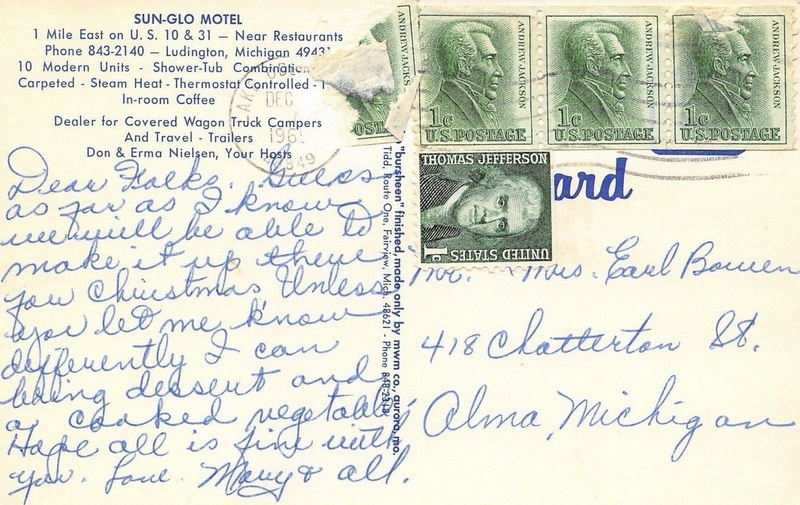 SUN-GLO MOTEL
1 Mile East on U.S. 10 & 31 — Near Restaurants
Phone 843-2140 — Ludington, Michigan 49431
10 Modern Units - Shower-Tub Combination
Carpeted - Steam Heat - Thermostat Controlled -
In-room Coffee
Dealer for Covered Wagon Truck Campers
And Travel - Trailers
Don & Erma Nielsen, Your Hosts
DEC
Dear Folks. Guess
as far as I know
we will be able to
make it up there
for Christmas Unless
you let me know
differently I can
bring dessert and
a cooked vegetable.
Hope all is fine with
you. Love. Mary & all.
"bursheen" finished, made only by mwm co., aurora, mo.
Tidd, Route One, Fairview, Mich. 48621 - Phone
ANDREW JACKS
OSTA
ANDREW JACKSON
1c
U.S. POSTAGE
ANDREW JACKSON
1c
U.S. POSTAGE
ANDREW JACKSON
1c
U.S. POSTAGE
THOMAS JEFFERSON
1c
UNITED STATES
ard
Mrs. Earl Bowen
418 Chatterton St.
Alma, Michigan